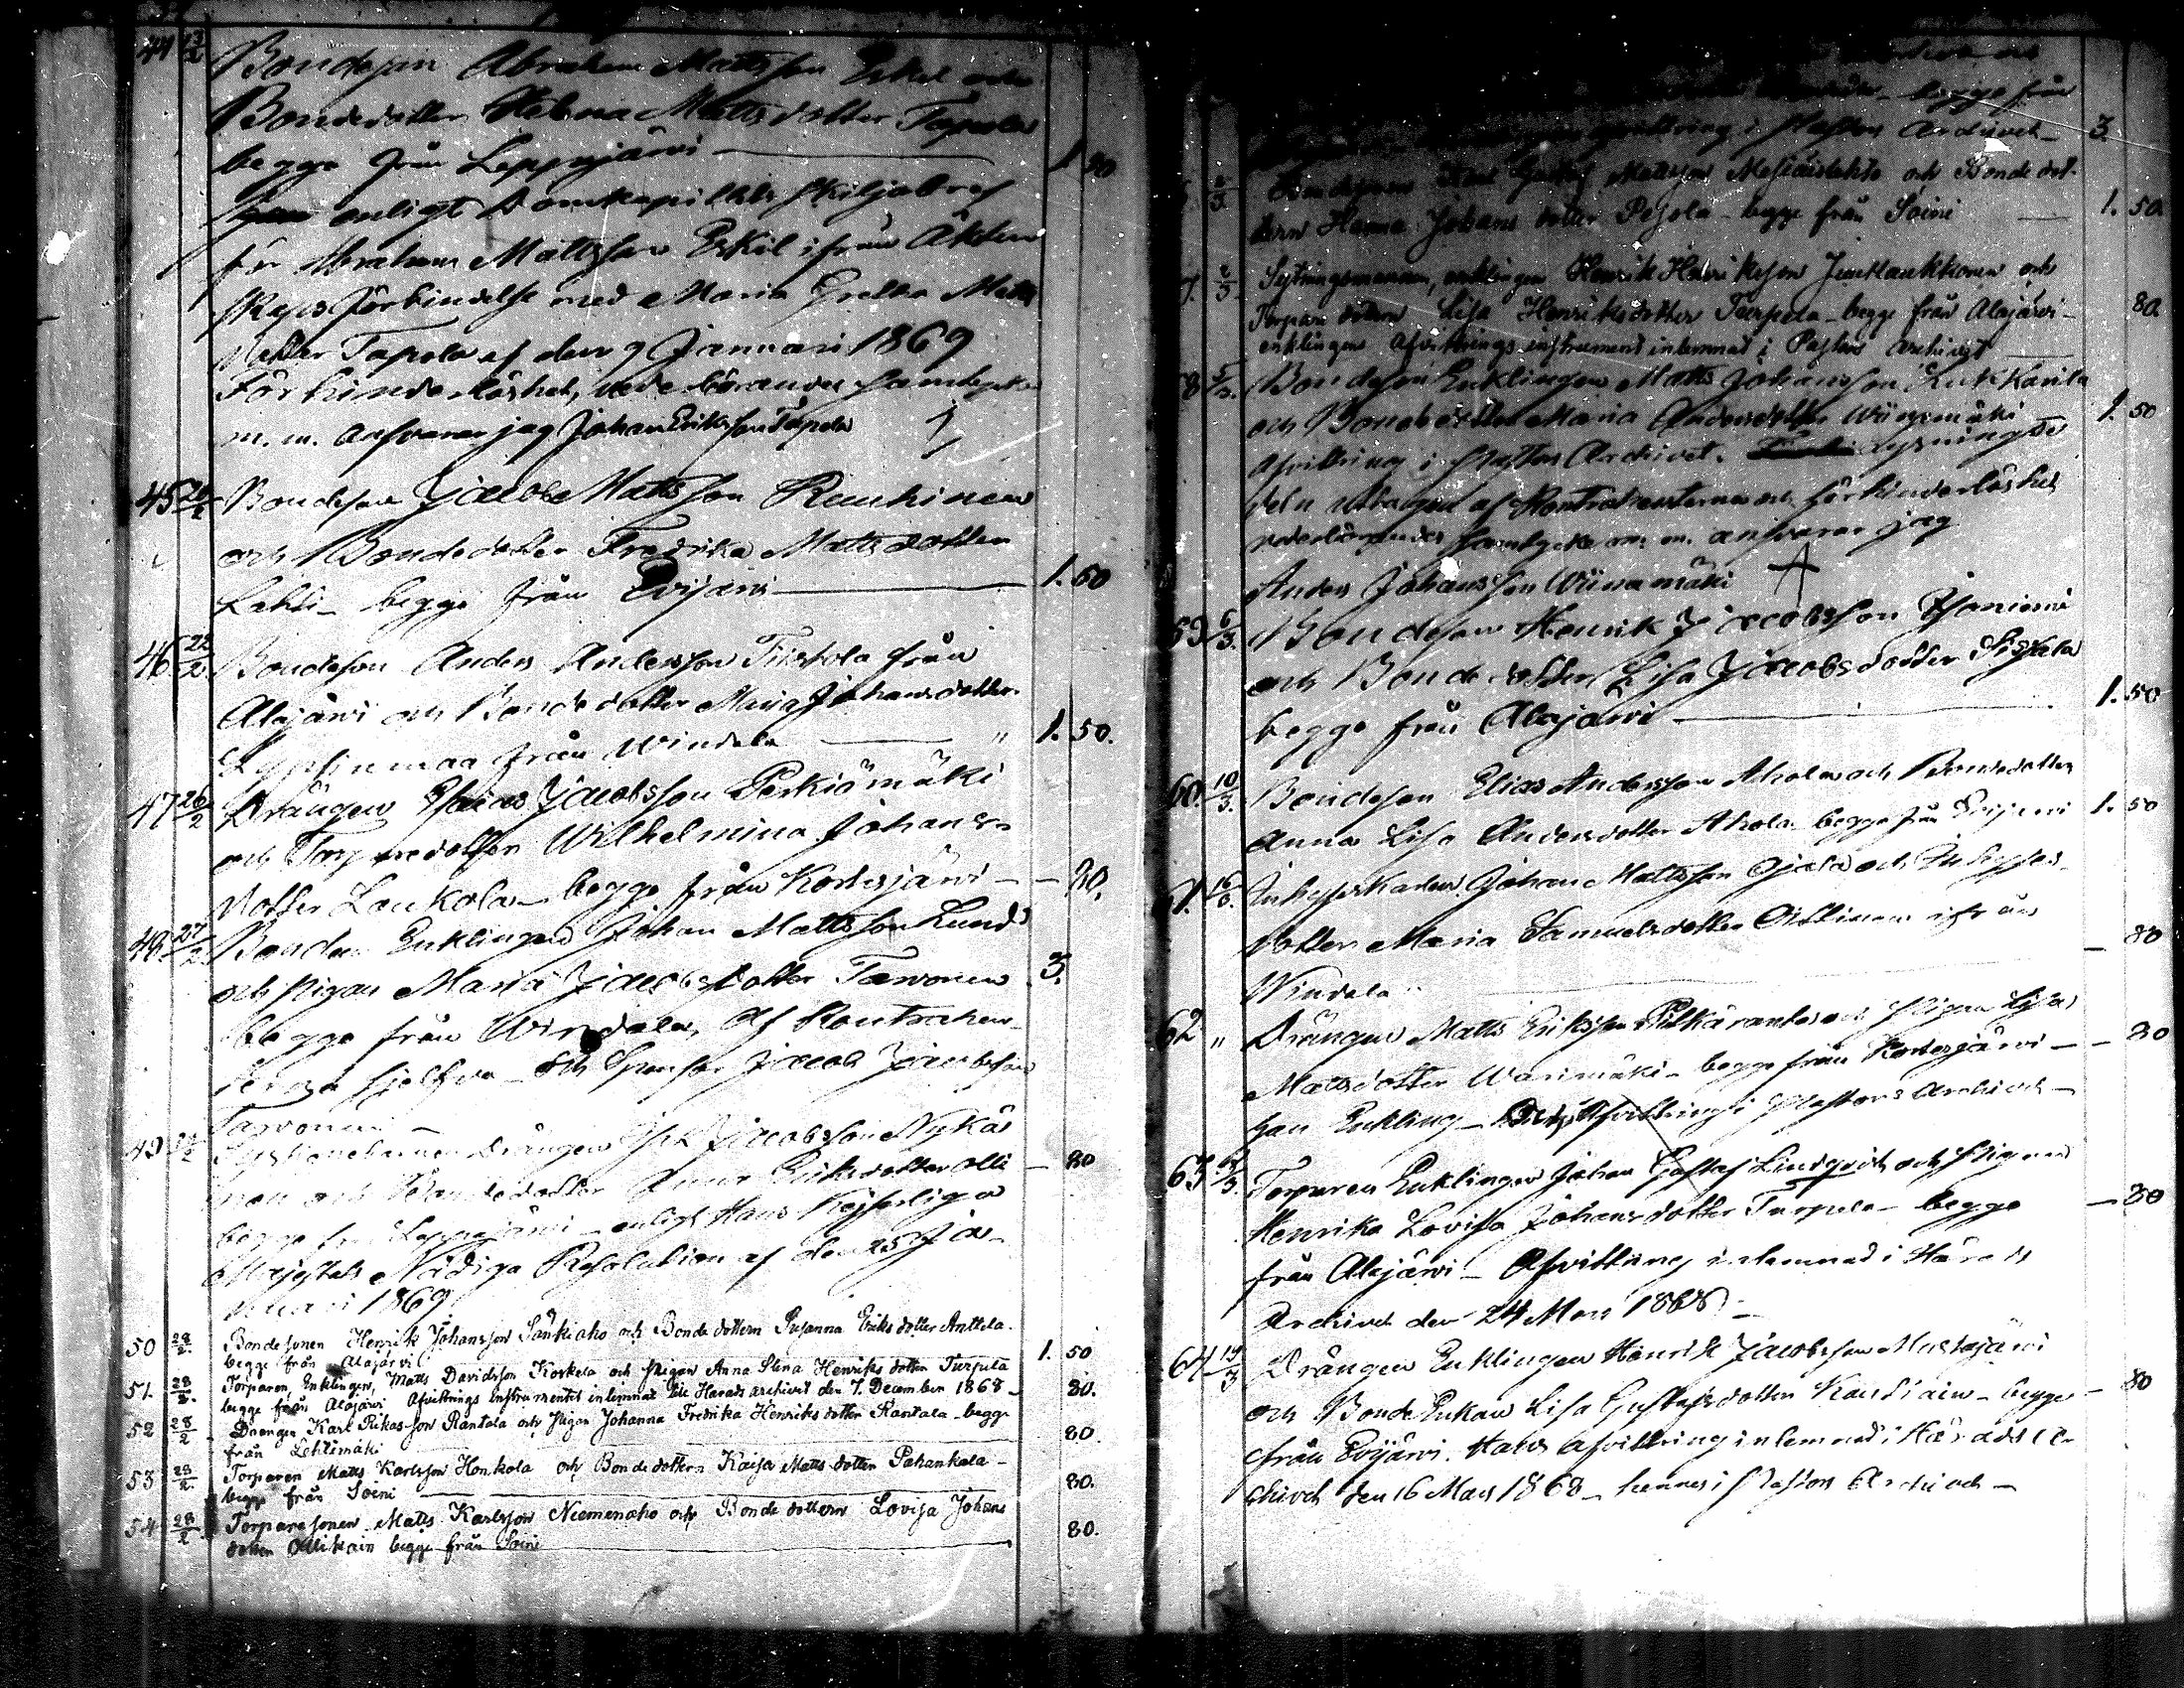 44 13/2 Bondeson Abraham Mattsson Eskel och
Bondedotter Helena Mattsdotter Tapola
begge från Lappajärvi — 1 50
enligt Domkapitlets skiljobref
för Abraham Mattsson Eskil ifrån Äkten
skaps förbindelse med Maria Greta Matts
dotter Tapola af den 9 Januari 1869
För hinderlöshet, vederbörandes samtycke
m. m. ansvarar jag Johan Eriksson Tapola
45 20/2 Bondeson Jacob Mattsson Rauhinen
och Bondedotter Fredrika Mattsdotter
Lahti – begge från Evijärvi — 1. 50
46 22/2. Bondeson Anders Andersson Tuistola från
Alajärvi och Bondedotter Maria Johansdotter
från Windala — " 1. 50.
47 26/2 Drängen Esaias Jacobsson Perkiömäki
och Torparedotter Wilhelmina Johans-
dotter Loukola – begge från Kortesjärvi – – 80.
48 27/2 Bonden Enklingen Johan Mattsson Lund
och pigan Maria Jacobsdotter Tarvonen 3.
begge från Windala, Af Kontrahen-
terna sjelfva – och Sponsor Jacob Jacobsson
Tarvonen –
49 Drängen Jacobsson Nykäs
och Bondedotter Anna Eriksdotter Olli – 80
begge från Lappajärvi – enligt Hans Kejserliga
Majestets Nådiga Resolution af den 25 Ja-
nuari 1869
50 28/2. Bondesonen Henrik Johansson Sänkiaho och Bonde dottern Susanna Eriks dotter Anttela.
begge från Alajärvi — 1. 50
51. 28/2. Torparen, Enklingen, Matts Davidsson Korkela och Pigan Anna Stina Henriks dotter Turpela
begge från Alajärvi Afvittrings instrumentet inlemnat till Härads archivet den 7. December 1868 – 80.
52 28/2 Drengen Karl Rikasson Rantala och Pigan Johanna Fredrika Henriks dotter Rantala – begge
från Lehtimäki — 80
53 28/2. Torparen Matts Karlsson Honkola och Bonde dottern Kaisa Matts dotter Pahankala –
begge från Soini — 80.
54 28/2. Torparesonen Matts Karlsson Niemenaho och Bonde dottern Lovisa Johans
dotter Ollikain begge från Soini — 80.
begge från
afvittring i Pastors Archivet – 3
Bondesonen Karl Gustaf Mattsson och Bonde dot-
tern Hanna Johans dotter Pesola – begge från Soini — 1. 50
7. 2/3. enklingen Henrik Henriksson och
Torpare dottern Lisa Henriksdotter Turpela – begge från Alajärvi – 80.
enklingens Afvittrings instrument inlemnad i Pastors Archivet —
58 5/3. Bondeson Enklingen Matts Johansson Kukkarila
och Bondedotter Maria Andersdotter Wiinamäki 1. 50
Afvittring i Pastors Archivet. Lysningsse
deln uttagen af Kontrahenterna och för hinderlöshet
vederbörandes samtycke m. m. ansvarar jag
Anders Johansson Wiinamäki
59 6/3. Bondeson Henrik Jacobsson Isoniemi
och Bondedotter Lisa Jacobsdotter
begge från Alajärvi — 1. 50
60. 10/3. Bondeson Elias Andersson Ahola och Bondedotter
Anna Lisa Andersdotter Ahola – begge från Evijärvi 1. 50
61. 16/3. Inhyseskarlen Johan Mattsson Ojala och Inhyses-
dotter Maria Samuelsdotter ifrån – 80
Windala
62 " Drängen Matts Eriksson Pitkäranta och Pigan Lisa
Mattsdotter Warimäki – begge från Kortesjärvi – – 80
han Enkling – Afvittring i Pastors Archivet –
63 Torparen Enklingen Johan Gustaf Lindqvist och Pigan
Henrika Lovisa Johansdotter Turpela – begge – 80
från Alajärvi – Afvittring inlemnad i Härads
Archivet den 24 Mars 1868 –
64 19/3 Drängen Enklingen Henrik Jacobsson Mustajärvi
och Bonde Enkan Lisa Gustafsdotter – begge – 80
från Evijärvi. Hans afvittring inlemnad i Härads Ar
chivet den 16 Mars 1868 – hennes i Pastors Archivet –